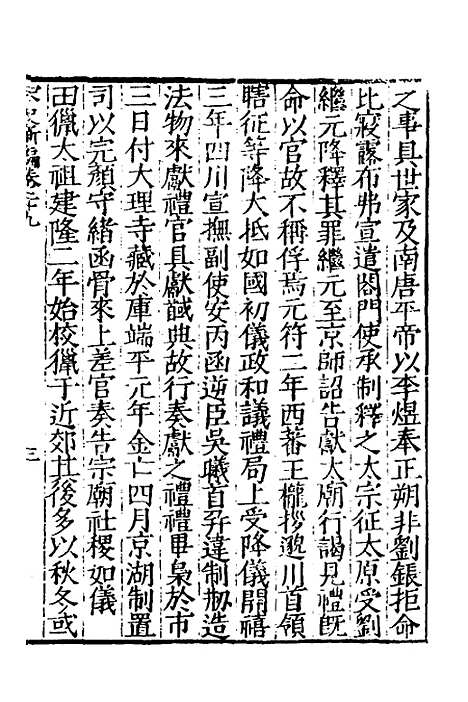 之事具世家及南唐平帝以李煜奉正朔非劉鋹拒命
比寢露布弗宣遣閤門使承制釋之太宗征太原受劉
繼元降釋其罪繼元至京師詔告獻太廟行謁見禮旣
命以官故不稱俘焉元符二年西蕃王攏拶邈川首領
瞎征等降大抵如國初儀政和議禮局上受降儀開禧
三年四川宣撫副使安丙函逆臣吳曦首并違制刱造
法物來獻禮官具獻馘典故行奏獻之禮禮畢梟於市
三日付大理寺藏於庫端平元年金亡四月京湖制置
司以完顏守緒函骨來上差官奏告宗廟社稷如儀
田獵太祖建隆二年始校獵于近郊其後多以秋冬或
宋史新編卷二十九
三